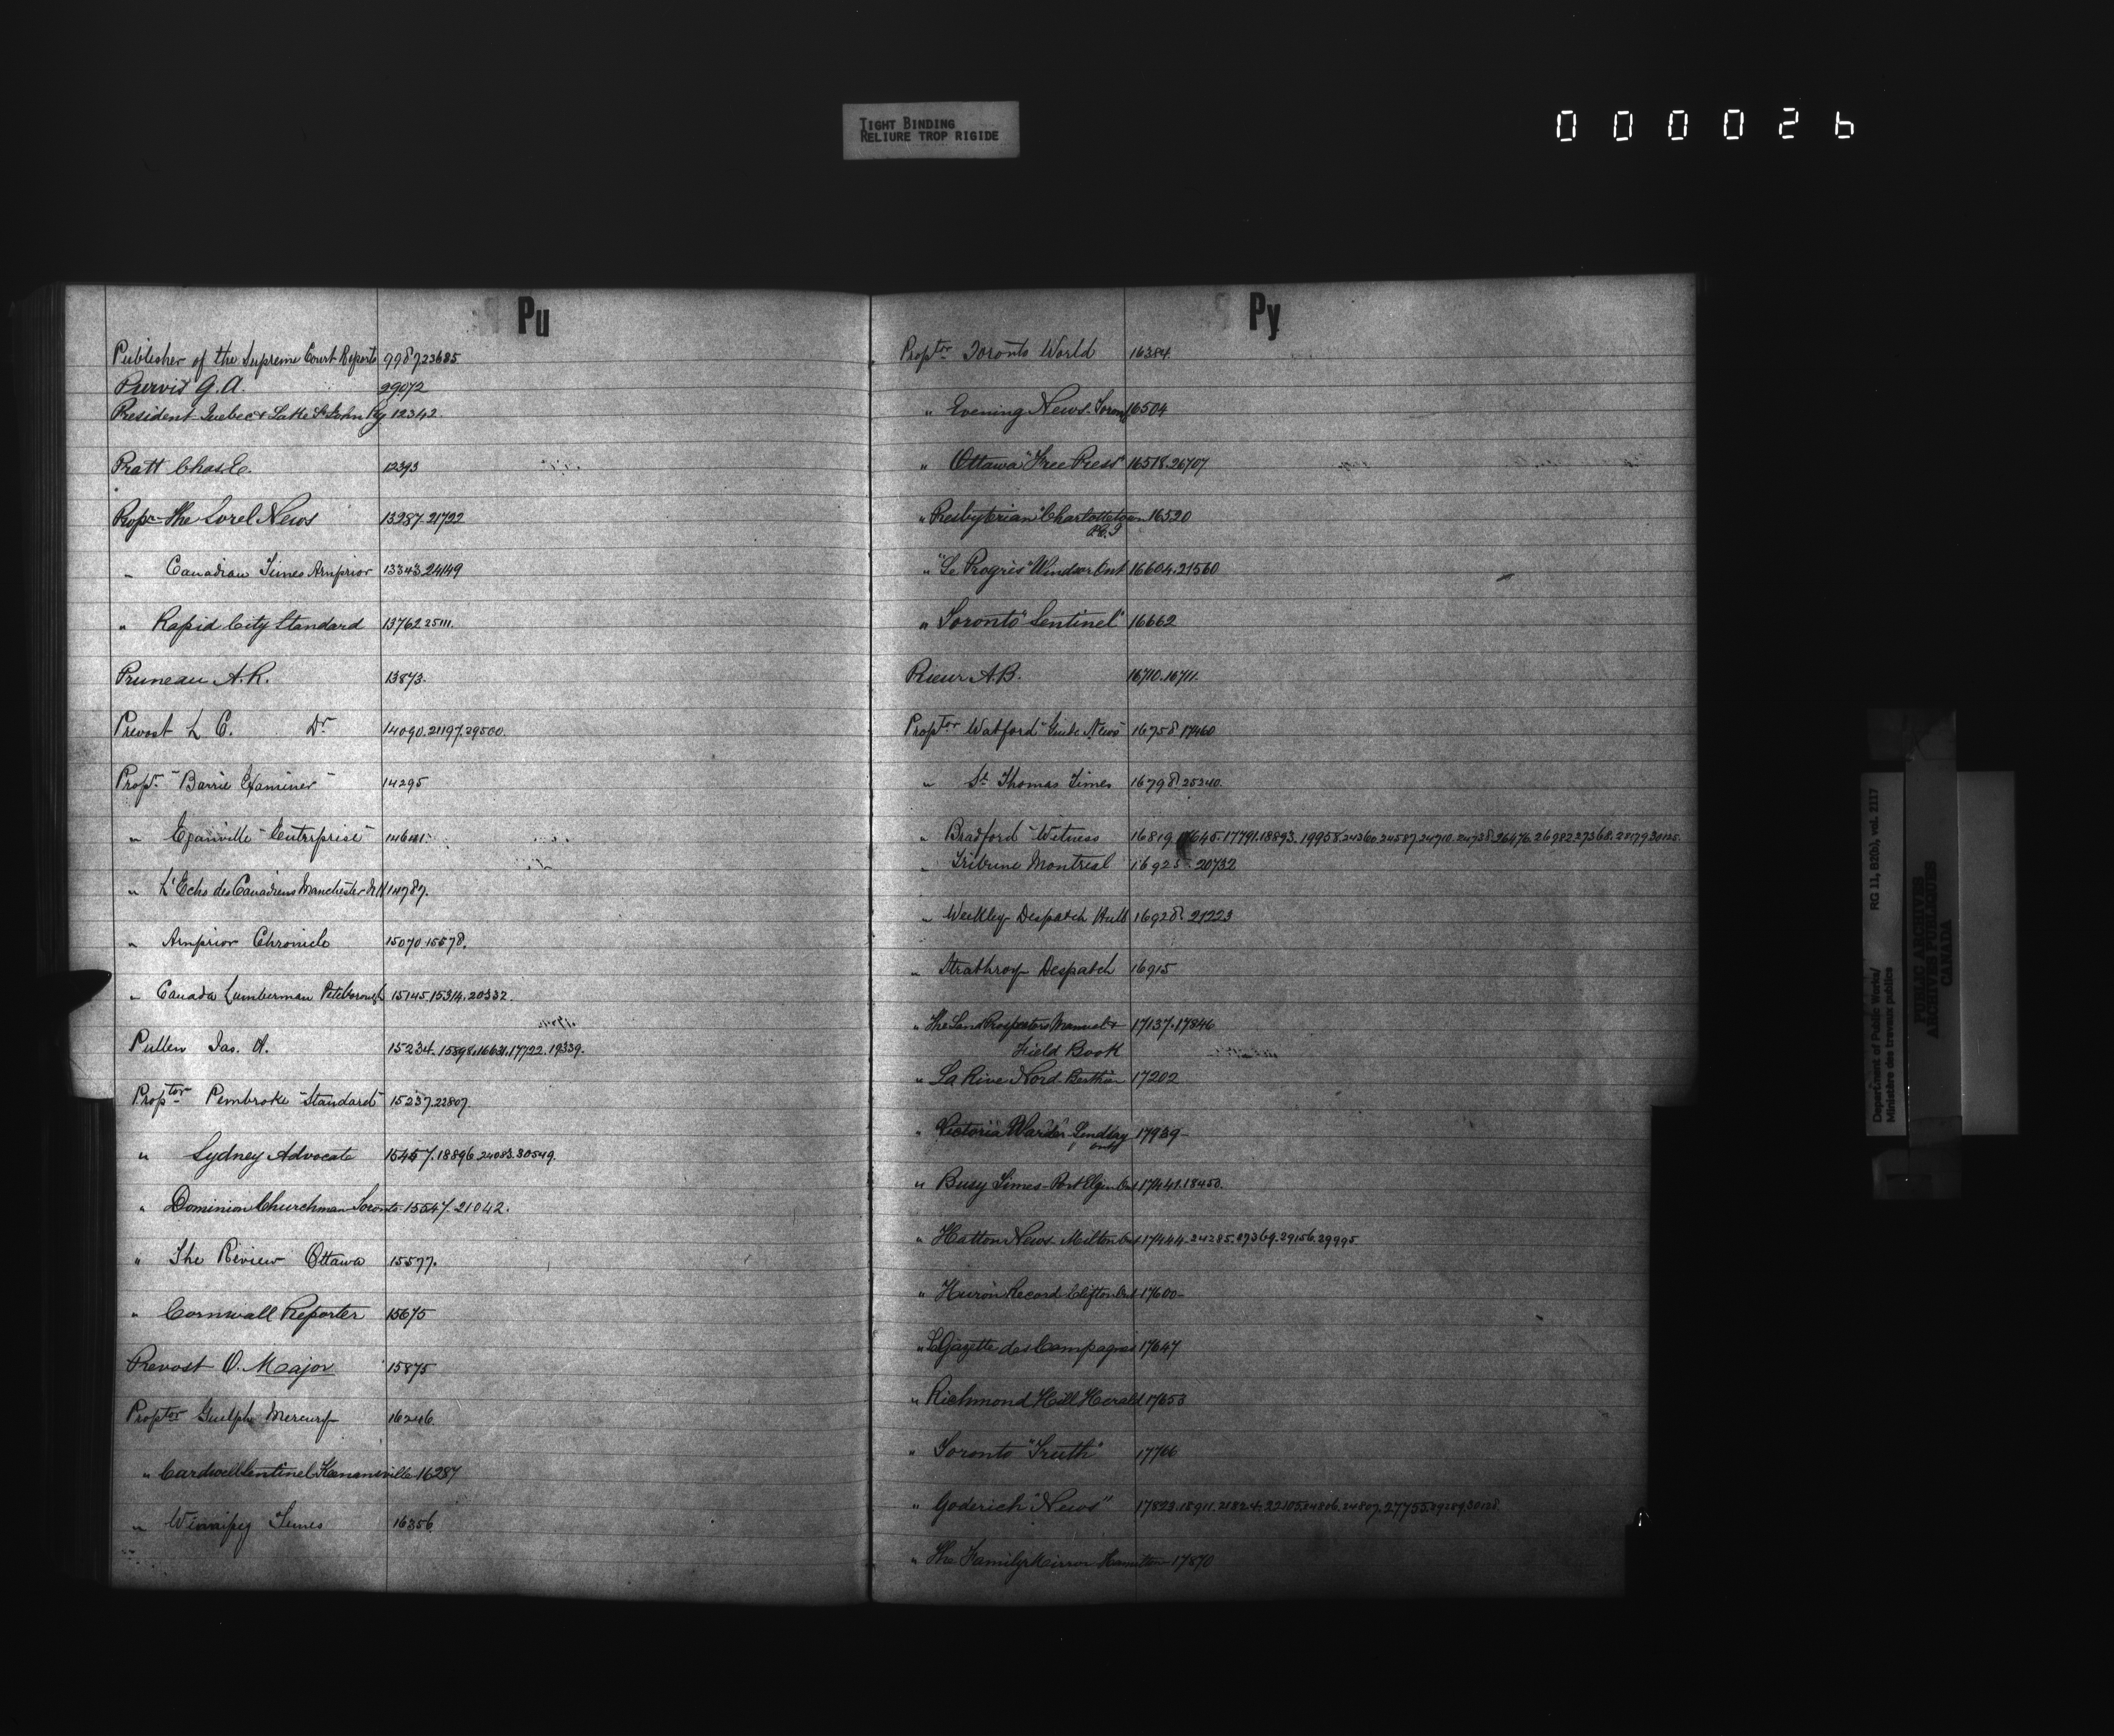 TIGHT BINDING
RELIURE TROP RIGIDE
000026
Pu
Publisher of the Supreme Court Reports 9987.23685
Purvis G. A. 29072
President Quebec & Lake St John Ry 12342
Pratt Chas. E. 12393
Propr The Sorel News 13287.21722
" Canadian Times Arnprior 13343.24149
" Rapid City Standard 13762.25111.
Pruneau A. R. 13873.
Prevost L C. Dr 14090.21197.29500.
Propr "Barrie Examiner" 14295
" Eganville "Enterprise"
" L'Echo des Canadiens Manchester N.H 14787.
" Arnprior Chronicle 15070.15578.
" Canada Lumberman Peterborough 15145.15314.20332.
Pullen Jas. A. 15234.15598.16631.17722.19339.
Proptor Pembroke "Standard" 15237.22807.
" Sydney Advocate 15457.18896.24083.30549.
" Dominion Churchman Toronto 15547.21042.
" The Review Ottawa 15577.
" Cornwall Reporter 15675
Prevost O. Major 15875
Proptor Guelph Mercury 16246.
" Cardwell Sentinel Keenansville 16287
" Winnipeg Times 16356
Py
Proptor Toronto World 16384.
" Evening News. Toronto 16504
" Ottawa "Free Press" 16518.26707
" Presbyterian Charlottetown 16520
P.E.I
" "Le Progrès" Windsor Ont 16604.21560
" Toronto "Sentinel" 16662
Rieur A.B. 16710.16711.
Proptor Watford "Guide News" 16758.17460
" St Thomas Times 16798.25240.
" Bradford "Witness" 16819. 17791.18893.19958.24360.24587.24710.24738.26676.26982.27368.28179.30125.
" Tribune Montreal 16925-20732
" Weekly Despatch Hull 16928.21223
" Strathroy Despatch 16915
" The Land Prospectors Manual & 17137.17846
Field Book
" La Rive Nord Berthier 17202
" Victoria "Warder" Lindsay 17939-
Ont
" Busy Times - Port Elgin Ont 17441.18450.
" Halton News Milton Ont 17444.24285.27369.29156.29995
" Huron Record Clifton Ont 17600-
" La Gazette des Campagnes 17647
" Richmond Hill Herald 17653
" Toronto "Truth" 17766
" Goderich "News" 17823.18911.21824.22105.24806.24807.27755.29289.30128
" The Family Mirror Hamilton 17870
Department of Public Works/
Ministère des travaux publics
RG 11, B2(b), vol. 2117
PUBLIC ARCHIVES
ARCHIVES PUBLIQUES
CANADA